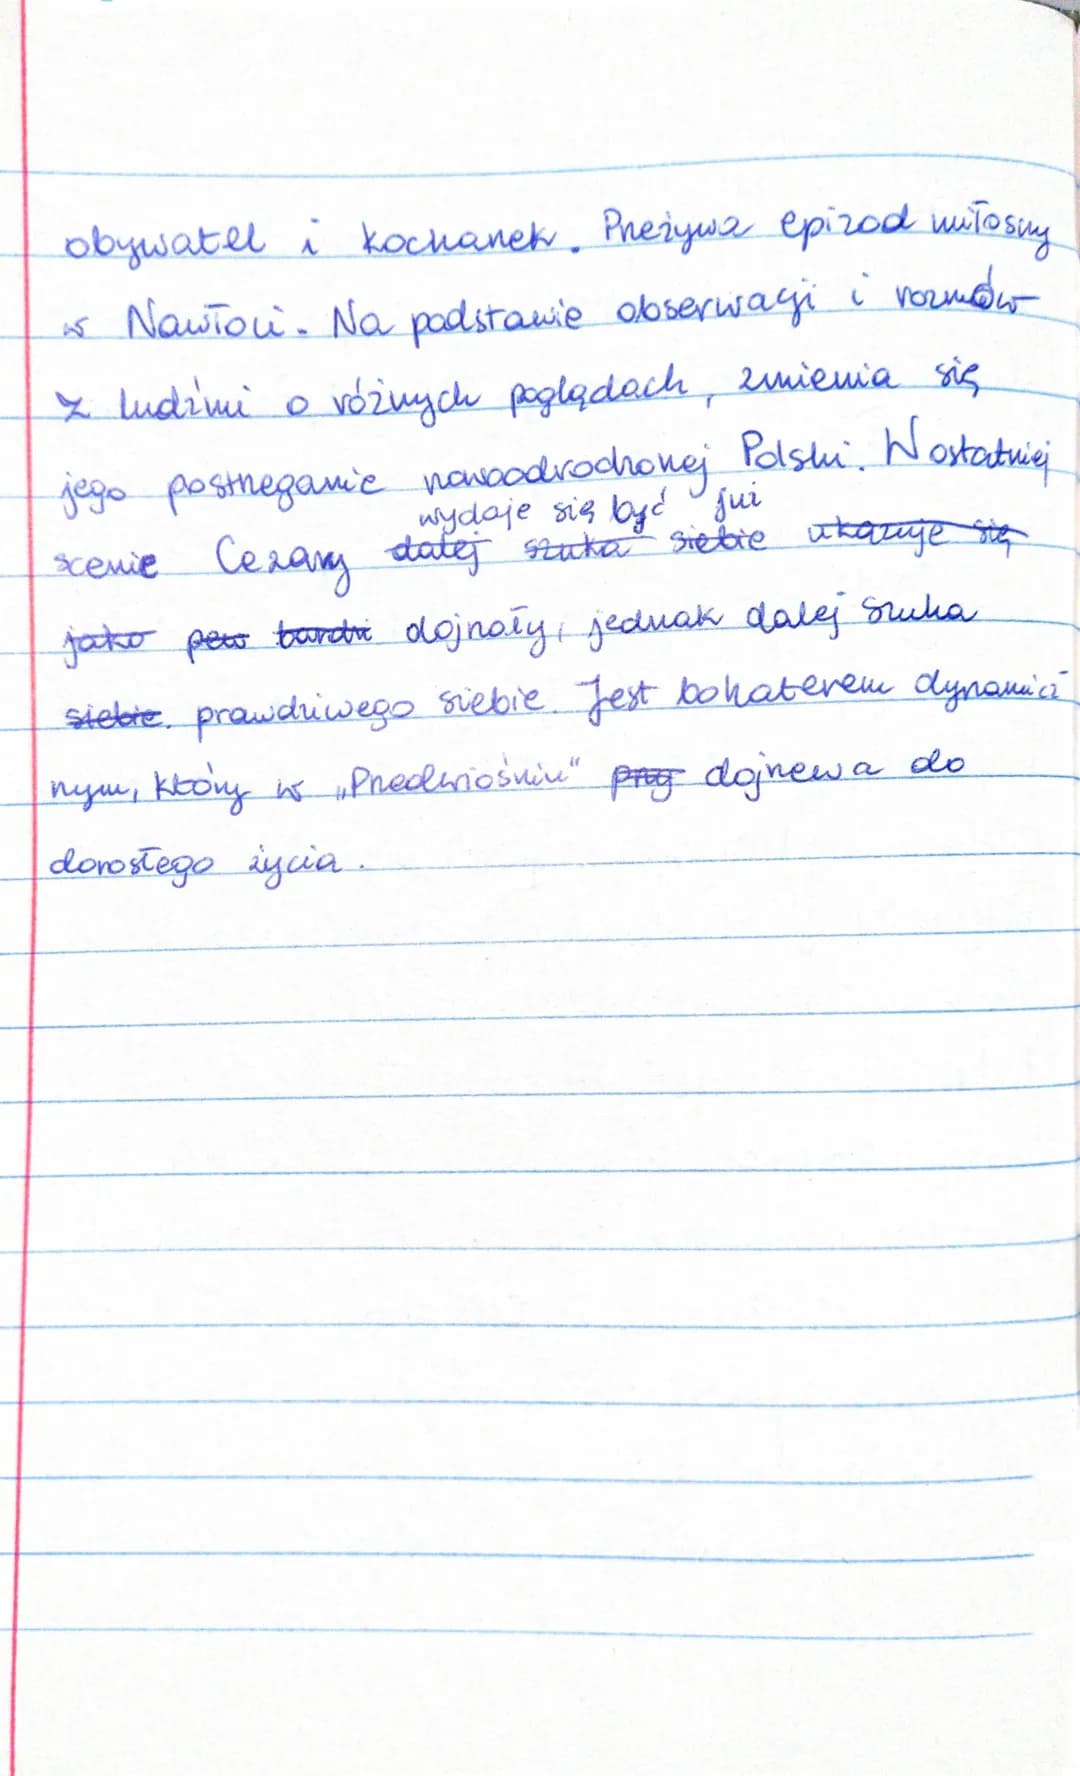 obywatel i kochanek. Przeżywa epizod miłosny
w Nawłoci. Na podstawie obserwacji i rozmów
z ludźmi o różnych poglądach, zmienia się
jego postrzeganie nowoodrodzonej Polski. W ostatniej
wydaje się być już
scenie Cezary dalej szuka siebie ukazuje się
jako pew bardzi dojrzały, jednak dalej szuka
siebie. prawdziwego siebie. Jest bohaterem dynamicz-
nym, który w „Przedwiośniu" przy dojrzewa do
dorosłego życia.